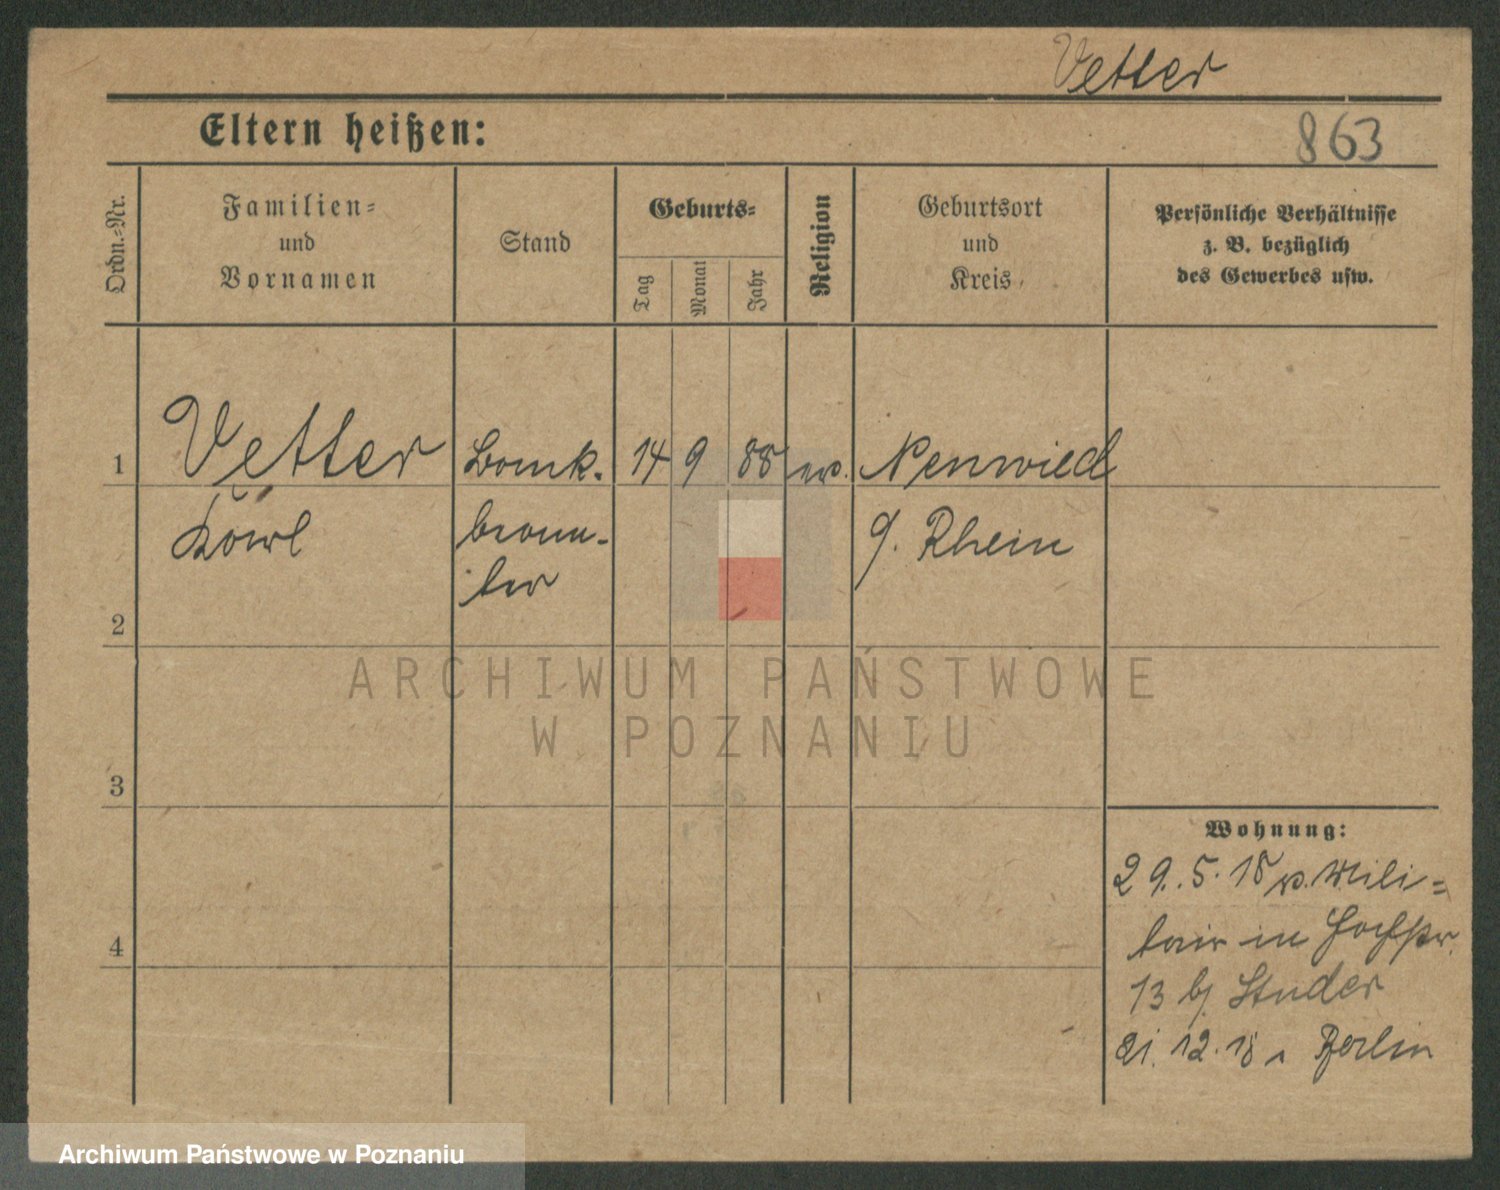 Vetter
Eltern heißen:
863
Ordn.-Nr.
Familien-
und
Vornamen
Stand
Geburts-
Tag
Monat
Jahr
Religion
Geburtsort
und
Kreis
Persönliche Verhältnisse
z. B. bezüglich
des Gewerbes usw.
1
Vetter
Bank-
14
9
88
Neuwied
Karl
beam-
ter
Rhein
2
ARCHIWUM PAŃSTWOWE
W POZNANIU
3
Wohnung:
29.5.18 v. Mili-
tair in
4
13 b/ Studer
21.12.18 n Berlin
Archiwum Państwowe w Poznaniu